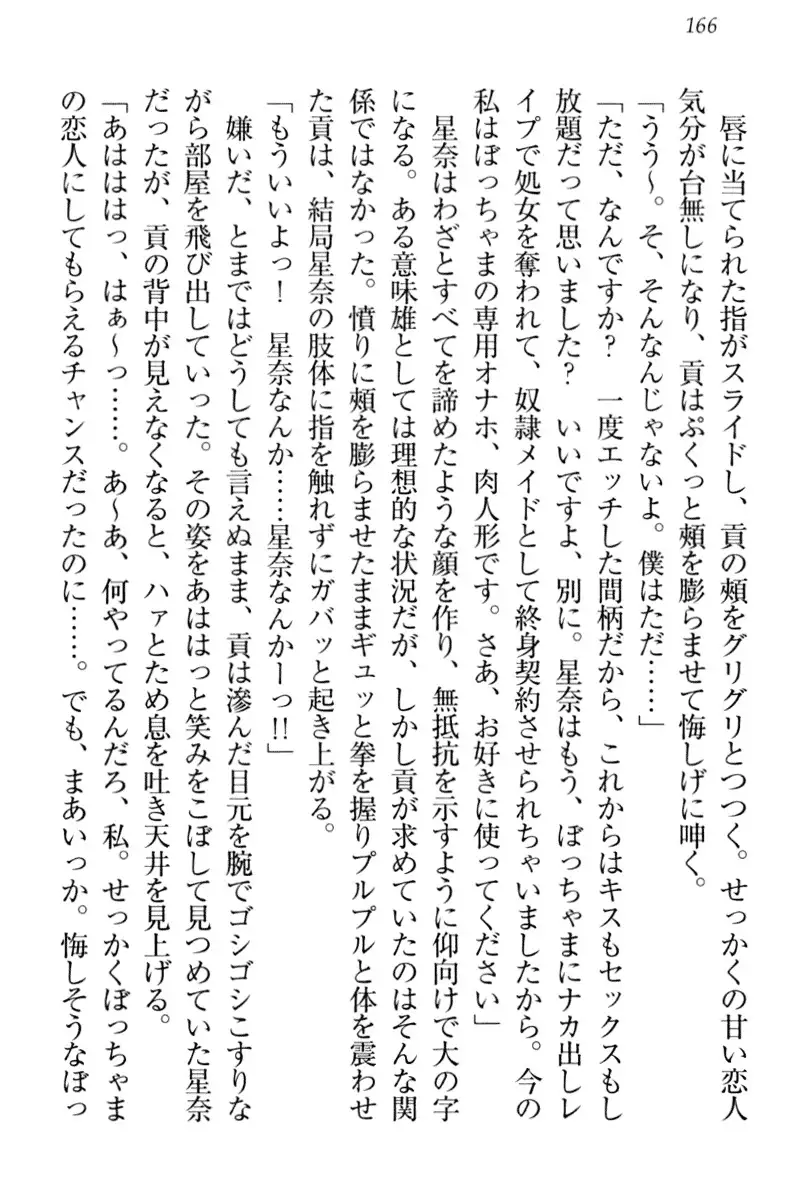 166
唇に当てられた指がスライドし、貢の頰をグリグリとつつく。せっかくの甘い恋人
気分が台無しになり、貢はぷくっと頰を膨らませて悔しげに呻く。
「うう～。そ、そんなんじゃないよ。僕はただ……」
「ただ、なんですか？　一度エッチした間柄だから、これからはキスもセックスもし
放題だって思いました？　いいですよ、別に。星奈はもう、ぼっちゃまにナカ出しレ
イプで処女を奪われて、奴隷メイドとして終身契約させられちゃいましたから。今の
私はぼっちゃまの専用オナホ、肉人形です。さあ、お好きに使ってください」
星奈はわざとすべてを諦めたような顔を作り、無抵抗を示すように仰向けで大の字
になる。ある意味雄としては理想的な状況だが、しかし貢が求めていたのはそんな関
係ではなかった。憤りに頰を膨らませたままギュッと拳を握りプルプルと体を震わせ
た貢は、結局星奈の肢体に指を触れずにガバッと起き上がる。
「もういいよっ！　星奈なんか……星奈なんかーっ!!」
嫌いだ、とまではどうしても言えぬまま、貢は滲んだ目元を腕でゴシゴシこすりな
がら部屋を飛び出していった。その姿をあははっと笑みをこぼして見つめていた星奈
だったが、貢の背中が見えなくなると、ハァとため息を吐き天井を見上げる。
「あはははっ、はぁ～っ……。あ～あ、何やってるんだろ、私。せっかくぼっちゃま
の恋人にしてもらえるチャンスだったのに……。でも、まあいっか。悔しそうなぼっ